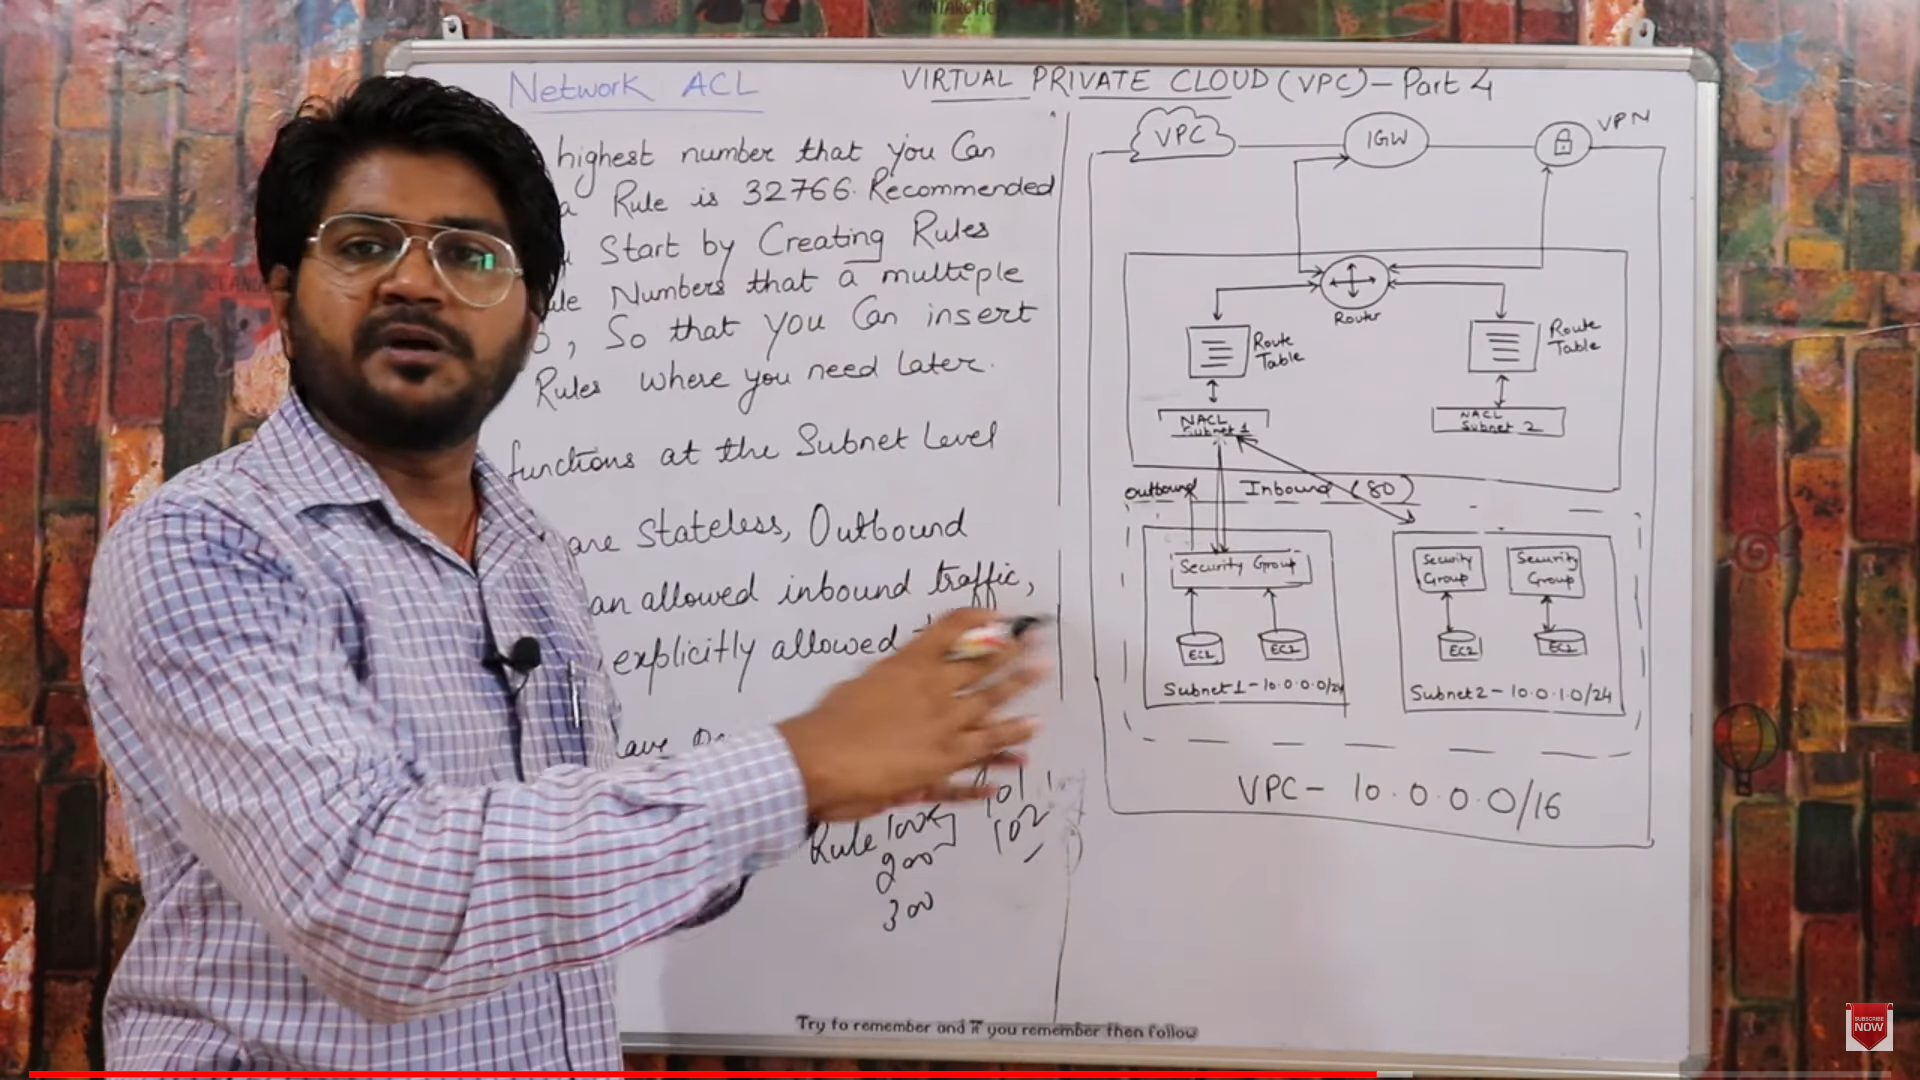 ANTARCTIC
Network ACL
highest number that you Can
a Rule is 32766. Recommended
Start by Creating Rules
Numbers that a multiple
, So that you Can insert
Rules where you need later.
functions at the Subnet Level
are Stateless, Outbound
an allowed inbound traffic,
explicitly allowed
Rule 100
200
300
101
102
VIRTUAL PRIVATE CLOUD (VPC) - Part 4
VPC
IGW
VPN
Router
Route
Table
Route
Table
NACL
Subnet 1
NACL
Subnet 2
Outbound
Inbound (80)
Security Group
Security
Group
Security
Group
EC2
EC2
EC2
EC2
Subnet 1 - 10.0.0.0/24
Subnet 2 - 10.0.1.0/24
VPC - 10.0.0.0/16
Try to remember and if you remember then follow
SUBSCRIBE
NOW